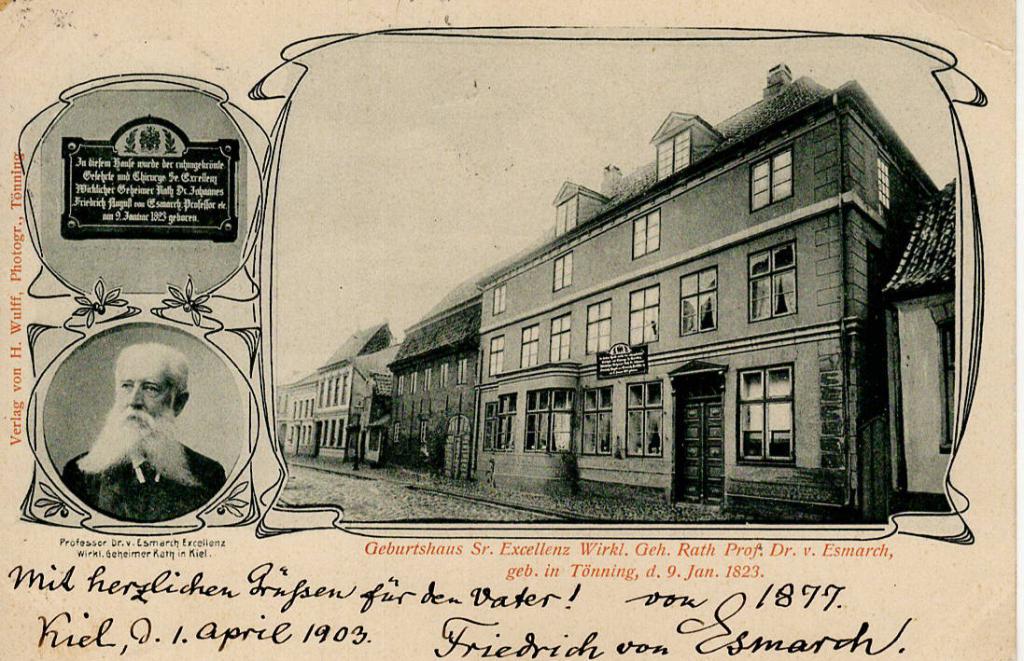 In diesem Hause wurde der ruhmgekrönte
Gelehrte und Chirurge Se. Excellenz
Wirklicher Geheimer Rath Dr. Johannes
Friedrich August von Esmarch, Professor etc.
am 9. Januar 1823 geboren.
Verlag von H. Wulff, Photogr., Tönning
Professor Dr. v. Esmarch Excellenz
Wirkl. Geheimer Rath in Kiel.
Geburtshaus Sr. Excellenz Wirkl. Geh. Rath Prof. Dr. v. Esmarch,
geb. in Tönning, d. 9. Jan. 1823.
Mit herzlichen Grüßen für den Vater! von 1877.
Kiel, d. 1. April 1903. Friedrich von Esmarch.